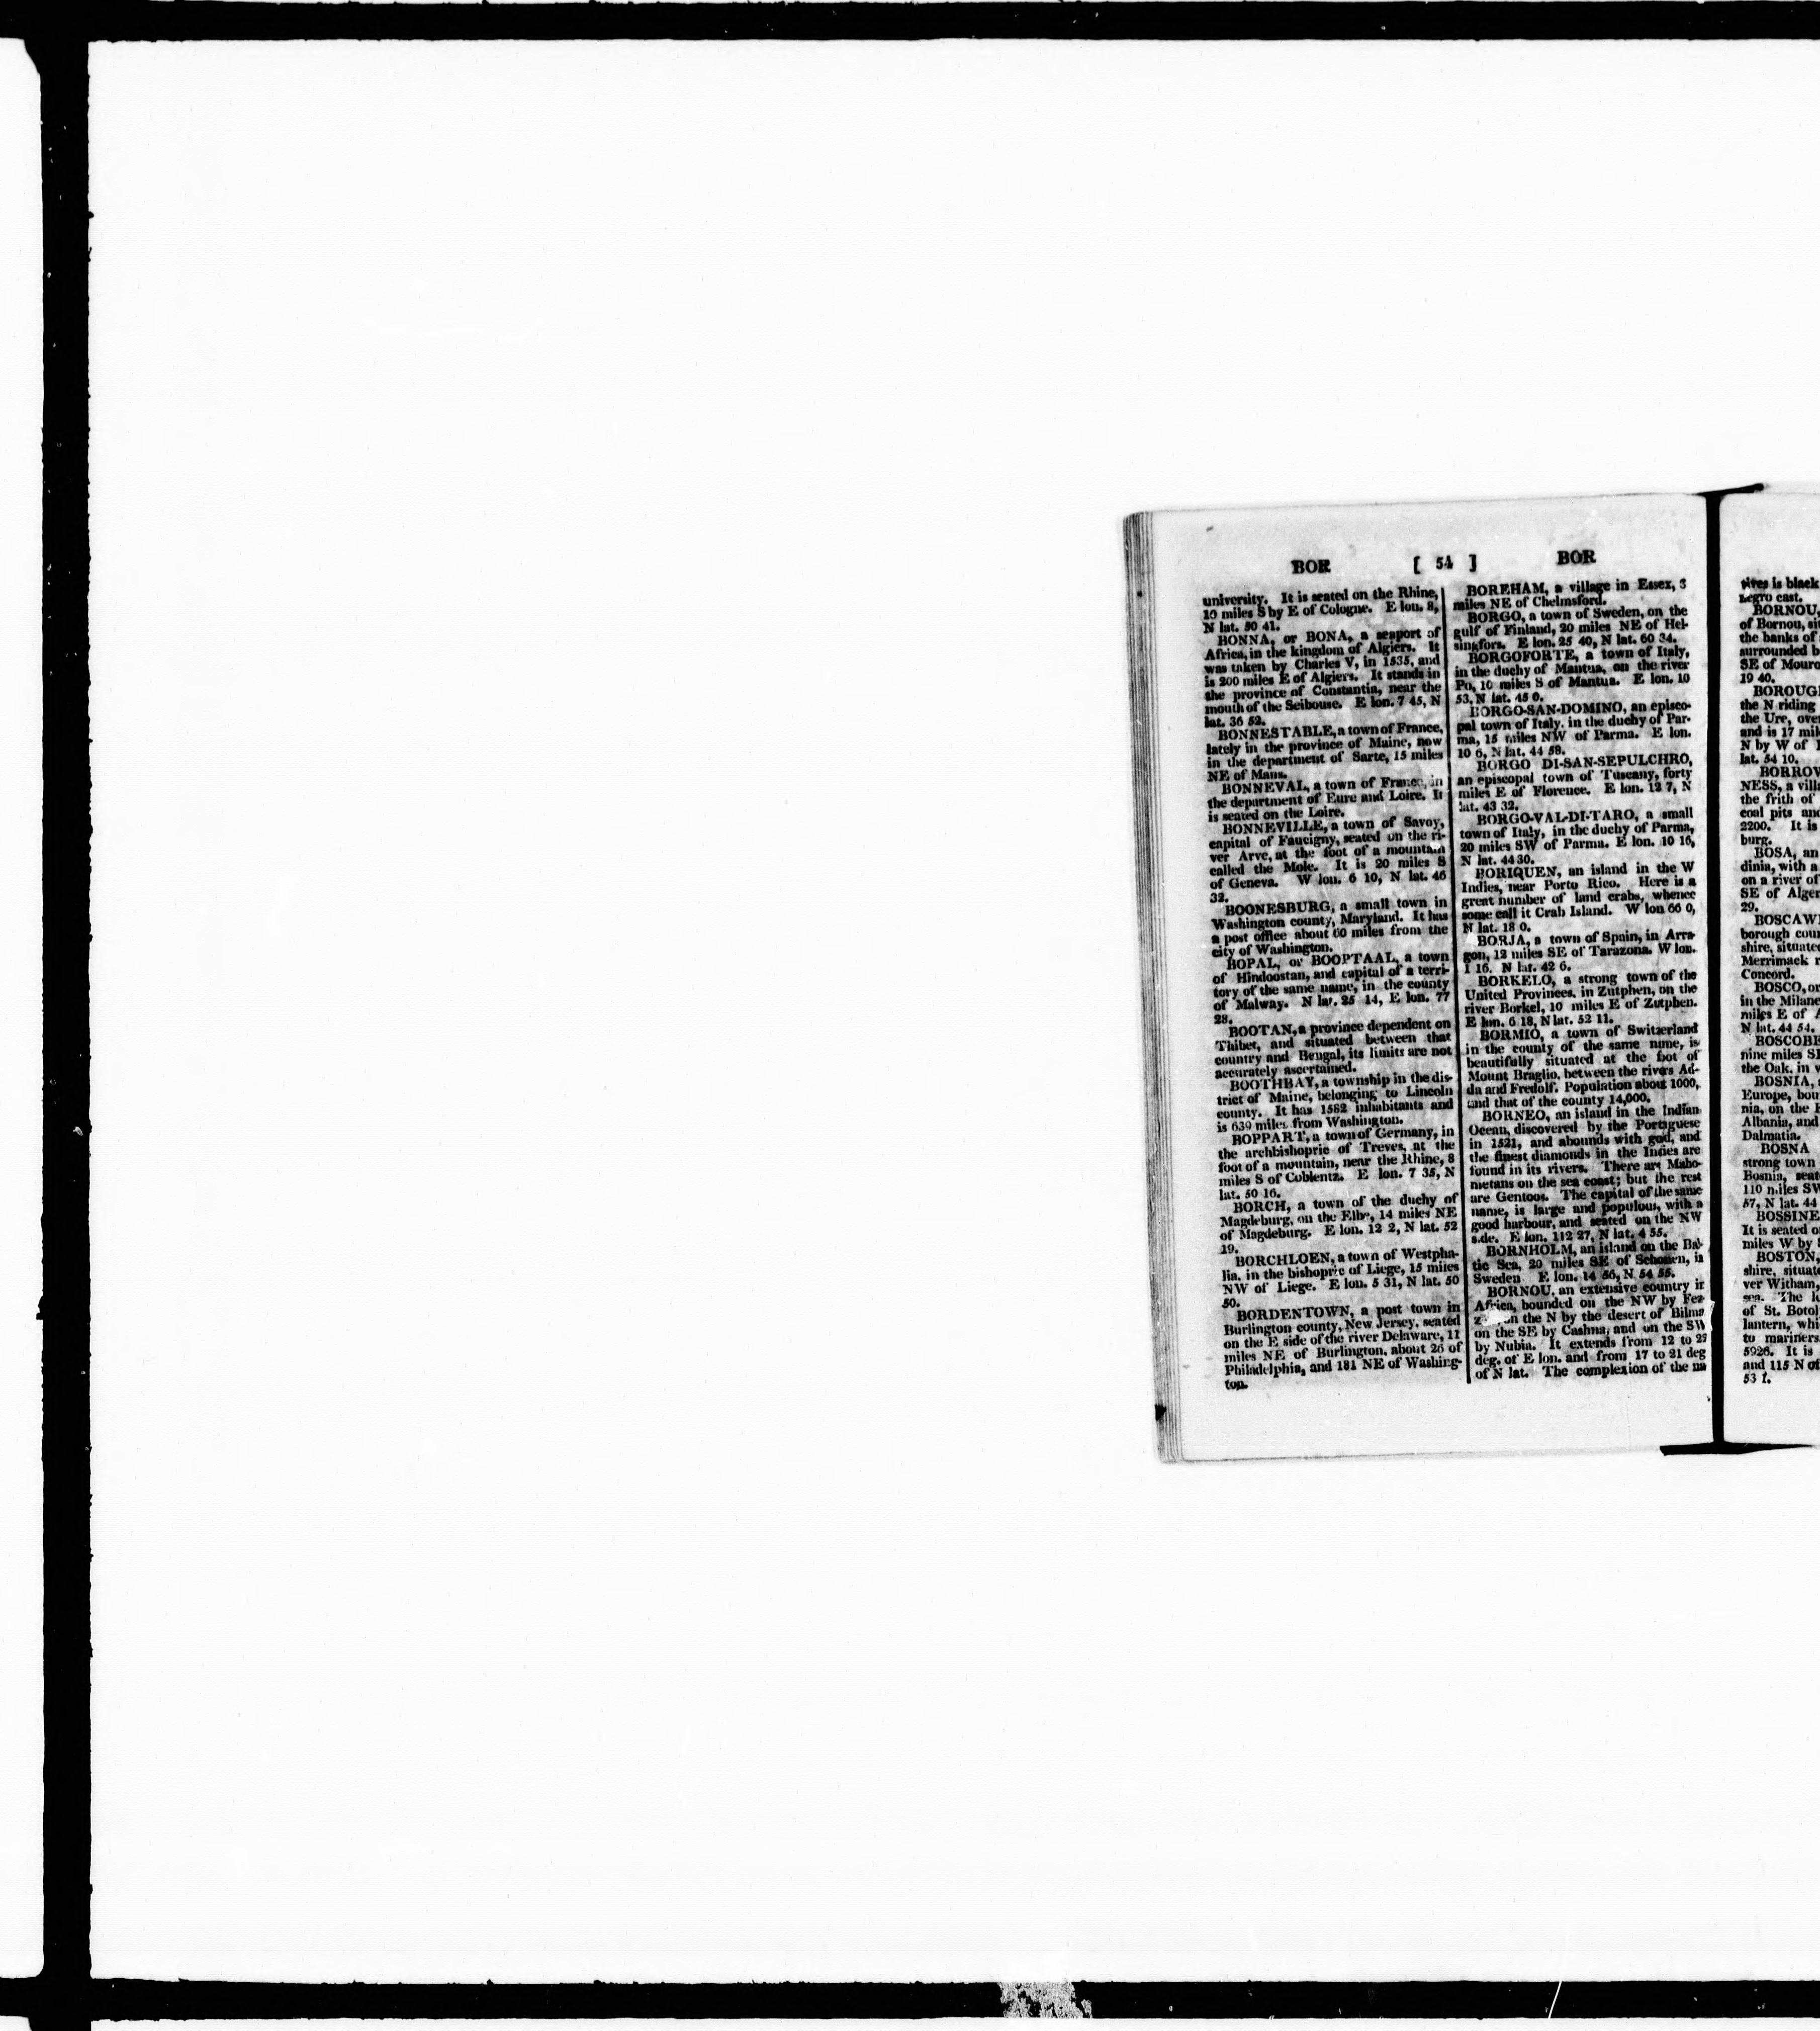 BOR [ 54 ] BOR
university. It is seated on the Rhine,
10 miles S by E of Cologne. E lon. 8,
N lat. 50 41.
BONNA, or BONA, a seaport of
Africa, in the kingdom of Algiers. It
was taken by Charles V, in 1535, and
is 200 miles E of Algiers. It stands in
the province of Constantia, near the
mouth of the Seibouse. E lon. 7 45, N
lat. 36 52.
BONNESTABLE, a town of France,
lately in the province of Maine, now
in the department of Sarte, 15 miles
NE of Mans.
BONNEVAL, a town of France, in
the department of Eure and Loire. It
is seated on the Loire.
BONNEVILLE, a town of Savoy,
capital of Faucigny, seated on the ri-
ver Arve, at the foot of a mountain
called the Mole. It is 20 miles S
of Geneva. W lon. 6 10, N lat. 46
32.
BOONESBURG, a small town in
Washington county, Maryland. It has
a post office about 60 miles from the
city of Washington.
BOPAL, or BOOPTAAL, a town
of Hindoostan, and capital of a terri-
tory of the same name, in the county
of Malway. N lat. 25 14, E lon. 77
28.
BOOTAN, a province dependent on
Thibet, and situated between that
country and Bengal, its limits are not
accurately ascertained.
BOOTHBAY, a township in the dis-
trict of Maine, belonging to Lincoln
county. It has 1582 inhabitants and
is 639 miles from Washington.
BOPPART, a town of Germany, in
the archbishopric of Treves, at the
foot of a mountain, near the Rhine, 8
miles S of Coblentz. E lon. 7 35, N
lat. 50 16.
BORCH, a town of the duchy of
Magdeburg, on the Elbe, 14 miles NE
of Magdeburg. E lon. 12 2, N lat. 52
19.
BORCHLOEN, a town of Westpha-
lia, in the bishopric of Liege, 15 miles
NW of Liege. E lon. 5 31, N lat. 50
50.
BORDENTOWN, a post town in
Burlington county, New Jersey, seated
on the E side of the river Delaware, 11
miles NE of Burlington, about 26 of
Philadelphia, and 181 NE of Washing-
ton.
BOREHAM, a village in Essex, 3
miles NE of Chelmsford.
BORGO, a town of Sweden, on the
gulf of Finland, 20 miles NE of Hel-
singfors. E lon. 25 40, N lat. 60 34.
BORGOFORTE, a town of Italy,
in the duchy of Mantua, on the river
Po, 10 miles S of Mantua. E lon. 10
53, N lat. 45 0.
BORGO-SAN-DOMINO, an episco-
pal town of Italy, in the duchy of Par-
ma, 15 miles NW of Parma. E lon.
10 6, N lat. 44 58.
BORGO DI-SAN-SEPULCHRO,
an episcopal town of Tuscany, forty
miles E of Florence. E lon. 12 7, N
lat. 43 32.
BORGO-VAL-DI-TARO, a small
town of Italy, in the duchy of Parma,
20 miles SW of Parma. E lon. 10 16,
N lat. 44 30.
BORIQUEN, an island in the W
Indies, near Porto Rico. Here is a
great number of land crabs, whence
some call it Crab Island. W lon 66 0,
N lat. 18 0.
BORJA, a town of Spain, in Arra-
gon, 12 miles SE of Tarazona. W lon.
1 16. N lat. 42 6.
BORKELO, a strong town of the
United Provinces, in Zutphen, on the
river Borkel, 10 miles E of Zutphen.
E lon. 6 18, N lat. 52 11.
BORMIO, a town of Switzerland
in the county of the same name, is
beautifully situated at the foot of
Mount Braglio, between the rivers Ad-
da and Fredolf. Population about 1000,
and that of the county 14,000.
BORNEO, an island in the Indian
Ocean, discovered by the Portuguese
in 1521, and abounds with god, and
the finest diamonds in the Indies are
found in its rivers. There are Maho-
metans on the sea coast; but the rest
are Gentoos. The capital of the same
name, is large and populous, with a
good harbour, and seated on the NW
side. E lon. 112 27, N lat. 4 55.
BORNHOLM, an island on the Bal-
tic Sea, 20 miles SE of Schonen, in
Sweden E lon. 14 56, N 54 55.
BORNOU, an extensive country in
Africa, bounded on the NW by Fez-
on the N by the desert of Bilma
on the SE by Cashna, and on the SW
by Nubia. It extends from 12 to 22
deg. of E lon. and from 17 to 21 deg
of N lat. The complexion of the na
tives is black
negro cast.
BORNOU,
of Bornou, si
the banks of
surrounded b
SE of Mourz
19 40.
BOROUG
the N riding
the Ure, ove
and is 17 mil
N by W of
lat. 54 10.
BORROW
NESS, a vill
the frith of
coal pits and
2200. It is
burg.
BOSA, an
dinia, with a
on a river of
SE of Alger
29.
BOSCAW
borough coun
shire, situate
Merrimack r
Concord.
BOSCO, or
in the Milane
miles E of A
N lat. 44 54.
BOSCOBE
nine miles SE
the Oak, in w
BOSNIA,
Europe, bou
nia, on the
Albania, and
Dalmatia.
BOSNA
strong town
Bosnia, seat
110 miles SW
57, N lat. 44
BOSSINE
It is seated o
miles W by
BOSTON,
shire, situat
ver Witham,
sea. The
of St. Botol
lantern, whi
to mariners
5926. It is
and 115 N of
53 1.